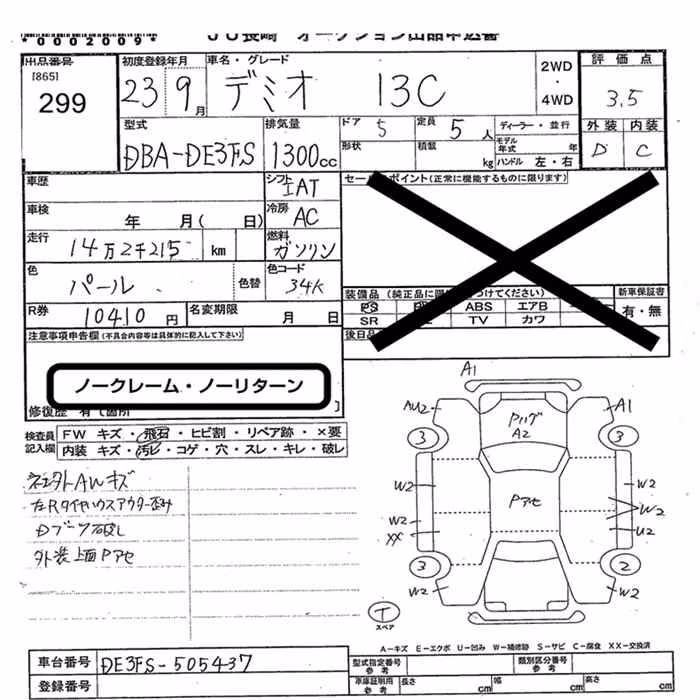 *0002009*
JU長崎 オークション出品申込書
出品番号
[865]
299
初度登録年月
23 9月
車名・グレード
デミオ 13C
2WD
・
4WD
評価点
3.5
外装 内装
D C
型式
DBA-DE3FS
排気量
1300cc
ドア 5
定員 5人
形状
積載 kg
ディーラー・並行
モデル年式 年
ハンドル 左・右
車歴
シフト
IAT
セールスポイント(正常に機能するものに限ります)
車検 年 月( 日)
冷房
AC
走行
14万2千215 km
燃料
ガソリン
色
パール
色替
色コード
34K
R券
10410円
名変期限 月 日
装備品
PS ABS エアB
SR TV カワ
新車保証書
有・無
後日品
注意事項申告欄(不具合内容等は具体的に記入して下さい)
ノークレーム・ノーリターン
修復歴 有て箇所
検査員記入欄
FW キズ・飛石・ヒビ割・リペア跡・×要
内装 キズ・汚レ・コゲ・穴・スレ・キレ・破レ
AWキズ
左Rタイヤハウスアウター歪み
Dブーツ破レ
外装上面Pアセ
A1
AU2
A1
Pハゲ
A2
3
3
W2
W2
Pアセ
W2
W2
XX
U2
3
2
W2
W2
T
スペア
A-キズ E-エクボ U-凹み W-補修跡 S-サビ C-腐食 XX-交換済
車台番号
DE3FS-505437
登録番号
型式指定番号
参考
類別区分番号
参考
車庫証明用
参考
長さ cm
幅 cm
高さ cm